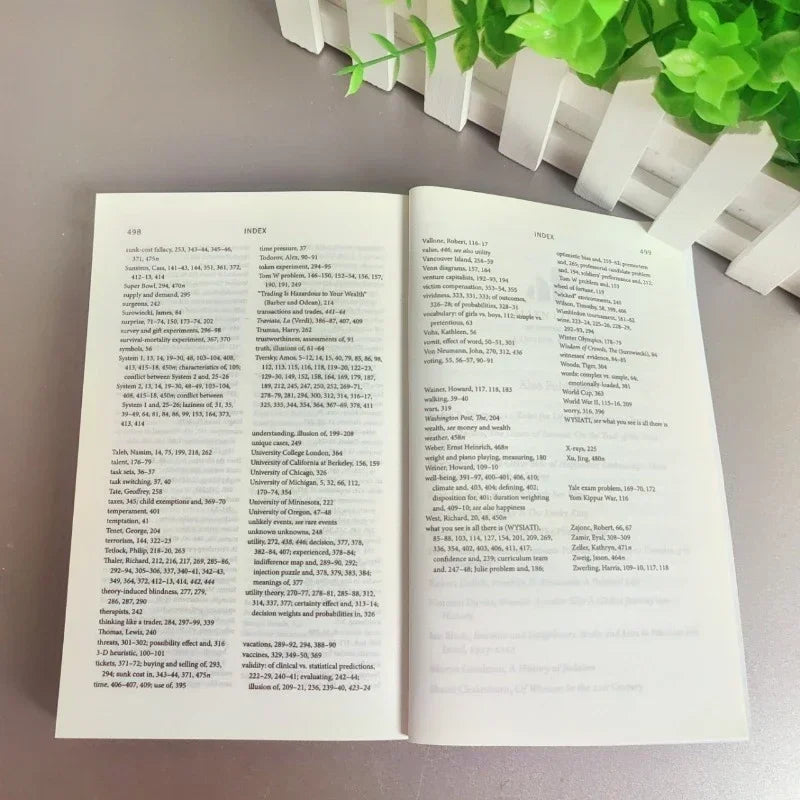 498
INDEX
sunk-cost fallacy, 253, 343–44, 345–46,
371, 475n
Sunstein, Cass, 141–43, 144, 351, 361, 372,
412–13, 414
Super Bowl, 294, 470n
supply and demand, 295
surgeons, 242
Surowiecki, James, 84
surprise, 71–74, 150, 173–74, 202
survey and gift experiments, 296–98
survival-mortality experiment, 367, 370
symbols, 56
System 1, 13, 14, 19–30, 48, 103–104, 408,
413, 415–18, 450n; characteristics of, 105;
conflict between System 2 and, 25–26
System 2, 13, 14, 19–30, 48–49, 103–104,
408, 415–18, 450n; conflict between
System 1 and, 25–26; laziness of, 31, 35,
39–49, 64, 81, 84, 86, 99, 153, 164, 373,
413, 414
Taleb, Nassim, 14, 75, 199, 218, 262
talent, 176–79
task sets, 36–37
task switching, 37, 40
Tate, Geoffrey, 258
taxes, 345; child exemptions and, 369–70
temperament, 401
temptation, 41
Tenet, George, 204
terrorism, 144, 322–23
Tetlock, Philip, 218–20, 263
Thaler, Richard, 212, 216, 217, 269, 285–86,
292–94, 305–306, 337, 340–41, 342–43,
349, 364, 372, 412–13, 414, 442, 444
theory-induced blindness, 277, 279,
286, 287, 290
therapists, 242
thinking like a trader, 284, 297–99, 339
Thomas, Lewis, 240
threats, 301–302; possibility effect and, 316
3-D heuristic, 100–101
tickets, 371–72; buying and selling of, 293,
294; sunk cost in, 343–44, 371, 475n
time, 406–407, 409; use of, 395
time pressure, 37
Todorov, Alex, 90–91
token experiment, 294–95
Tom W problem, 146–50, 152–54, 156, 157,
190, 191, 249
"Trading Is Hazardous to Your Wealth"
(Barber and Odean), 214
transactions and trades, 441–44
Traviata, La (Verdi), 386–87, 407, 409
Truman, Harry, 262
trustworthiness, assessments of, 91
truth, illusions of, 61–64
Tversky, Amos, 5–12, 14, 15, 40, 79, 85, 86, 98,
112, 113, 115, 116, 118, 119–20, 122–23,
129–30, 149, 152, 158, 164, 169, 179, 187,
189, 212, 245, 247, 250, 252, 269–71,
278–79, 281, 294, 300, 312, 314, 316–17,
325, 335, 344, 354, 364, 367–69, 378, 411
understanding, illusion of, 199–208
unique cases, 249
University College London, 364
University of California at Berkeley, 156, 159
University of Chicago, 326
University of Michigan, 5, 32, 66, 112,
170–74, 354
University of Minnesota, 222
University of Oregon, 47–48
unlikely events, see rare events
unknown unknowns, 248
utility, 272, 438, 446; decision, 377, 378,
382–84, 407; experienced, 378–84;
indifference map and, 289–90, 292;
injection puzzle and, 378, 379, 383, 384;
meanings of, 377
utility theory, 270–77, 278–81, 285–88, 312,
314, 337, 377; certainty effect and, 313–14;
decision weights and probabilities in, 326
vacations, 289–92, 294, 388–90
vaccines, 329, 349–50, 369
validity: of clinical vs. statistical predictions,
222–29, 240–41; evaluating, 242–44;
illusion of, 209–21, 236, 239–40, 423–24
INDEX
499
Vallone, Robert, 116–17
value, 446; see also utility
Vancouver Island, 254–59
Venn diagrams, 157, 164
venture capitalists, 192–93, 194
victim compensation, 353–54, 355
vividness, 323, 331, 333; of outcomes,
326–28; of probabilities, 328–31
vocabulary: of girls vs. boys, 112; simple vs.
pretentious, 63
Vohs, Kathleen, 56
vomit, effect of word, 50–51, 301
Von Neumann, John, 270, 312, 436
voting, 55, 56–57, 90–91
Wainer, Howard, 117, 118, 183
walking, 39–40
wars, 319
Washington Post, The, 204
wealth, see money and wealth
weather, 458n
Weber, Ernst Heinrich, 468n
weight and piano playing, measuring, 180
Weiner, Howard, 109–10
well-being, 391–97, 400–401, 406, 410;
climate and, 403, 404; defining, 402;
disposition for, 401; duration weighting
and, 409–10; see also happiness
West, Richard, 20, 48, 450n
what you see is all there is (WYSIATI),
85–88, 103, 114, 127, 154, 201, 209, 269,
336, 354, 402, 403, 406, 411, 417;
confidence and, 239; curriculum team
and, 247–48; Julie problem and, 186;
optimistic bias and, 259–62; premortem
and, 265; professorial candidate problem
and, 194; soldiers' performance and, 212,
Tom W problem and, 153
wheel of fortune, 119
"wicked" environments, 240
Wilson, Timothy, 58, 399, 466
Wimbledon tournament, 361–62
wine, 223–24, 225–26, 228–29,
292–93, 294
Winter Olympics, 178–79
Wisdom of Crowds, The (Surowiecki), 84
witnesses' evidence, 84–85
Woods, Tiger, 304
words: complex vs. simple, 64;
emotionally-loaded, 301
World Cup, 363
World War II, 115–16, 209
worry, 316, 396
WYSIATI, see what you see is all there is
X-rays, 225
Xu, Jing, 480n
Yale exam problem, 169–70, 172
Yom Kippur War, 116
Zajonc, Robert, 66, 67
Zamir, Eyal, 308–309
Zeller, Kathryn, 471n
Zweig, Jason, 464n
Zwerling, Harris, 109–10, 117, 118